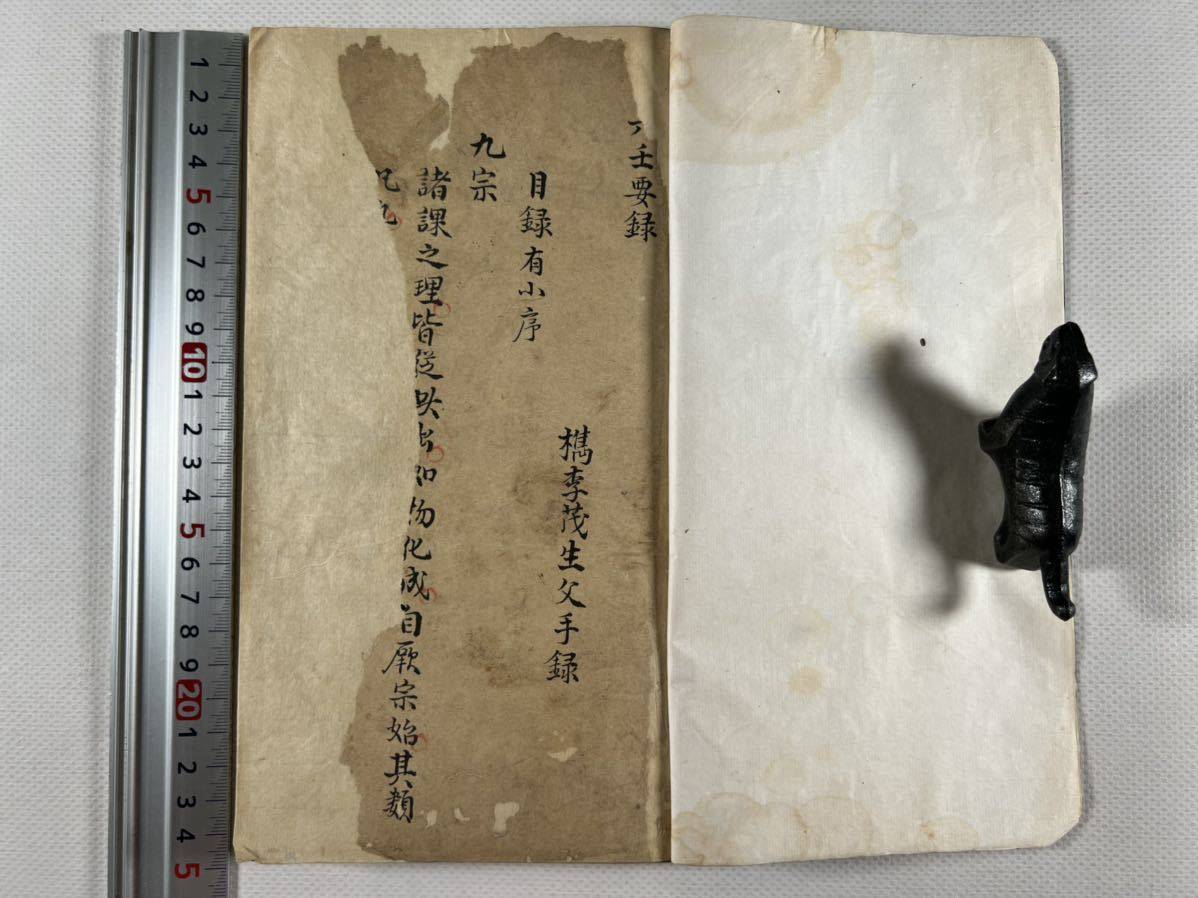 壬要録
檇李茂生父手録
目録有小序
九宗
諸課之理皆從此出如物化成自厥宗始其類
1 2 3 4 5 6 7 8 9 10 1 2 3 4 5 6 7 8 9 20 1 2 3 4 5